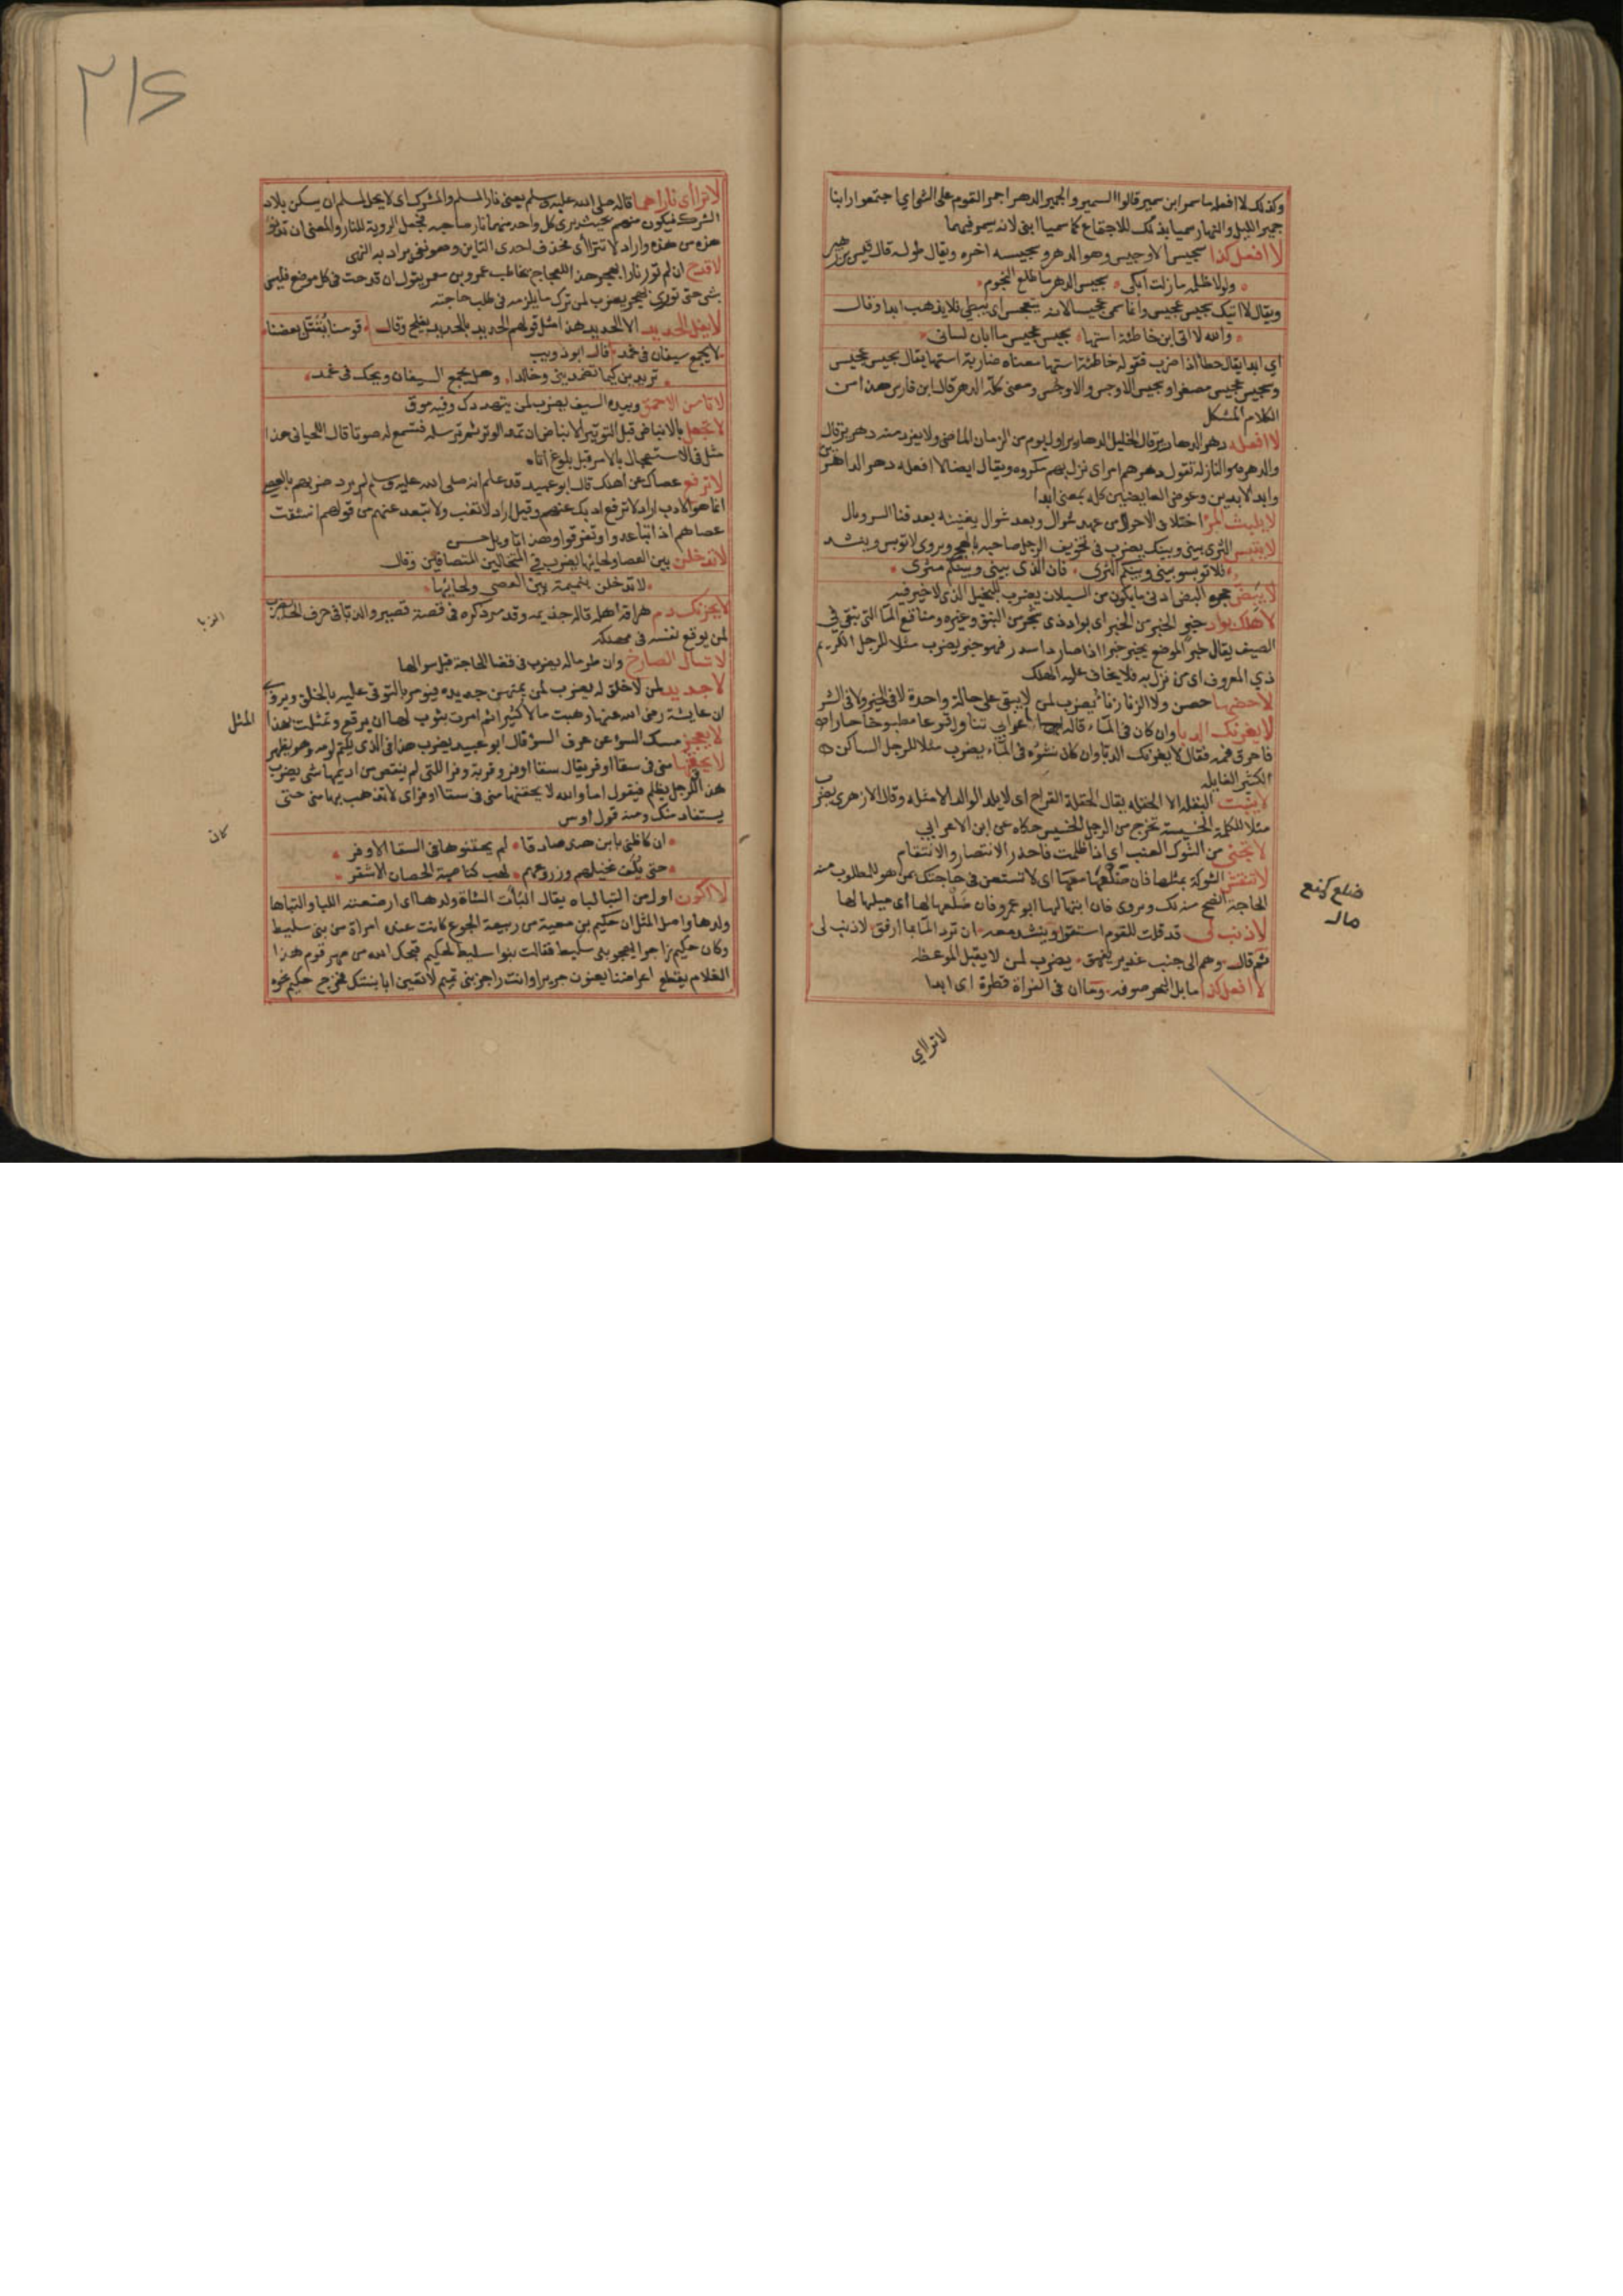 وكذلك لا افعله ما سمر ابن سمير قالوا السمير والجمير الدهر اجمر القوم على الشئ اي اجتمعوا وابنا
جمير الليل والنهار سميا بذلك للاجتماع كما سميا ابنى لانه يسمر فيهما
لا افعل كذا سجيس الاوجس وهو الدهر وسجيسه اخره ويقال طوله قال قيس بن زهير
ولولا ظلمه ما زلت ابكى سجيس الدهر ما طلع النجوم
ويقال لا اتيك سجيس عجيس وانما سمى عجيسا لانه يتعجس اى يبطى فلا يذهب ابدا وقال
والله لا اتى ابن خاطئة استها سجيس عجيس ما ابان لسانى
اي ابدا يقال حطا اذا ضرب فقوله خاطئة استها معناه ضاربة استها يقال سجيس عجيس
وسجيس عجيس مصغرا وسجيس الاوجس والاوجس ومعنى كله الدهر قال ابن فارس هذا من
الكلام المشكل
لا افعله دهر الدهارير قال الخليل الدهارير اول يوم من الزمان الماضى ولا يفرد منه دهرير قال
والدهر هو النازلة تقول دهرهم امر اى نزل بهم مكروه ويقال ايضا لا افعله دهر الداهرين
وابد الابدين وعوض العايضين كله بمعنى ابدا
لا يلبث المرا اختلاف الاحوال من عهد شوال وبعد شوال يفنينه بعد فنا السربال
لا يتبس الثرى بينى وبينك يضرب فى تخويف الرجل صاحبه بالهجر ويروى لا توبس وينشد
فلا توبسو بينى وبينكم الثرى فان الذى بينى وبينكم مثرى
لا يبض حجره البض ادنى ما يكون من السيلان يضرب للبخيل الذى لا خير فيه
لا تهلك بواد خبر الخبر من الخبر اى بواد ذى شجر من النبق وغيره ومناقع الما التى تبقى فى
الصيف يقال خبر الموضع يخبر خبرا اذا صار ذا سدر فهو خبر يضرب مثلا للرجل الكريم
ذي المعروف اى من نزل به فلا يخاف عليه الهلك
لا حضنها حضن ولا الزنا زنا يضرب لمن لا يبقى على حالة واحدة لا فى الخير ولا فى الشر
لا يغرنك الدبا وان كان فى الماء قاله اعرابى تناول قرعا مطبوخا حارا
فاحرق فمه فقال لا يغرنك الدبا وان كان نشوه فى الماء يضرب مثلا للرجل الساكن
الكثير الغايلة
لا ينبت البقلة الا الحقلة يقال الحقلة القراح اى لا يلد الوالد الا مثله وقال الازهرى يضرب
مثلا للكلمة الخسيسة تخرج من الرجل الخسيس حكاه عن ابن الاعرابي
لا تجنى من الشوك العنب اي اذا ظلمت فاحذر الانتصار والانتقام
لا تنقش الشوكة بمثلها فان ضلعها معها اى لا تستعن فى حاجتك بمن هو للمطلوب منه
الحاجة انصح منه لك ويروى فان ابنها لها ابو عمرو فان ضلعها لها اى ميلها لها
لا ذنب لى قد قلت للقوم استقوا وينشد معه ان ترد الما بما ارفق لا ذنب لى
ثم قال وهم الى جنب غدير يفهق يضرب لمن لا يقبل الموعظه
لا افعل كذا ما بل البحر صوفه وما ان فى الفراة قطرة اى ابدا
ضلع كنع
مال
لا تراي
٢١٤
لا تراأى ناراهما قاله صلى الله عليه وسلم يعنى نار المسلم والمشرك اى لا يحل لمسلم ان يسكن بلاد
الشرك فيكون منهم بحيث يرى كل واحد منهما نار صاحبه فجعل الروية للنار والمعنى ان تدنو
هذه من هذه واراد لا تتراأى فحذف احدى التاين وهو نفى يراد به النهى
لا قدح ان لم تور نارا بهجر هذا للعجاج يخاطب عمرو بن معمر يقول ان قدحت فى كل موضع فليس
بشى حتى تورى بهجر يضرب لمن ترك ما يلزمه فى طلب حاجته
لا يفل الحديد الا الحديد هذا مثل قولهم الحديد بالحديد يفلح وقال قومنا يقتل بعضنا
لا يجمع سيفان فى غمد قال ابو ذويب
تريدين كيما تضمدينى وخالدا وهل يجمع السيفان ويحك فى غمد
لا تامن الاحمق وبيده السيف يضرب لمن يتهددك وفيه موق
لا تعجل بالانباض قبل التوتير الانباض ان تمد الوتر ثم ترسله فتسمع له صوتا قال اللحيانى هذا
مثل فى الاستعجال بالامر قبل بلوغ اناه
لا ترفع عصاك عن اهلك قال ابو عبيد قد علم انه صلى الله عليه وسلم لم يرد ضربهم بالعصا
انما هو الادب اراد لا ترفع ادبك عنهم وقيل اراد لا تغب ولا تبعد عنهم من قولهم انشقت
عصاهم اذا تباعدوا وتفرقوا وهذا تاويل حسن
لا تدخلن بين العصا ولحائها يضرب فى المتخالين المتصافين وقال
لا تدخلن بنميمة بين العصى ولحائها
لا يحزنك دم هراقه اهله قاله جذيمه وقد مر ذكره فى قصة قصير والزبا فى حرف الخا يضرب
لمن يوقع نفسه فى مهلكة
لا تسال الصارخ وان طر ماله يضرب فى قضا الحاجة قبل سوالها
لا جديد لمن لا خلق له يضرب لمن يمتهن جديده فيومر بالتوقى عليه بالخلق ويروى
ان عايشة رضى الله عنها وهبت مالا كثيرا ثم امرت بثوب لها ان يرقع وتمثلت بهذا
لا يعجز مسك السوء عن عرف السوء قال ابو عبيد يضرب هذا فى الذى يكتم لومه وهو يظهر
لا يحقنها منى فى سقا اوفر يقال سقا اوفر وقربة وفرا للتى لم ينقص من اديمها شى يضرب
هذا الرجل يظلم فيقول اما والله لا يحقنها منى فى سقا اوفر اى لا تذهب بها منى حتى
يستفاد منك ومنه قول اوس
ان كان ظنى بابن هند صادقا لم يحقنوها فى السقا الاوفر
حتى يلف نخيلهم وزروعهم لهب كناصية الحصان الاشقر
لا اكون اول من التبا لباه يقال التبات الشاة ولدها اى ارضعته اللبا والتباها
ولدها واصل المثل ان حكيم بن معية من ربيعة الجوع كانت عنده امراة من بنى سليط
وكان حكيم زاجرا يهجو بنى سليط فقالت بنوا سليط لحكيم قبحك الله من صهر قوم هذا
الغلام يقطع اعراضنا يعنون جريرا وانت راجز بنى تميم لا تعين ابا بنتك فخرج حكيم نحوه
الزبا
المثل
كان